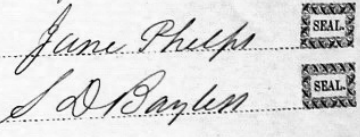 Jane Phelps SEAL.
S D Bayless SEAL.